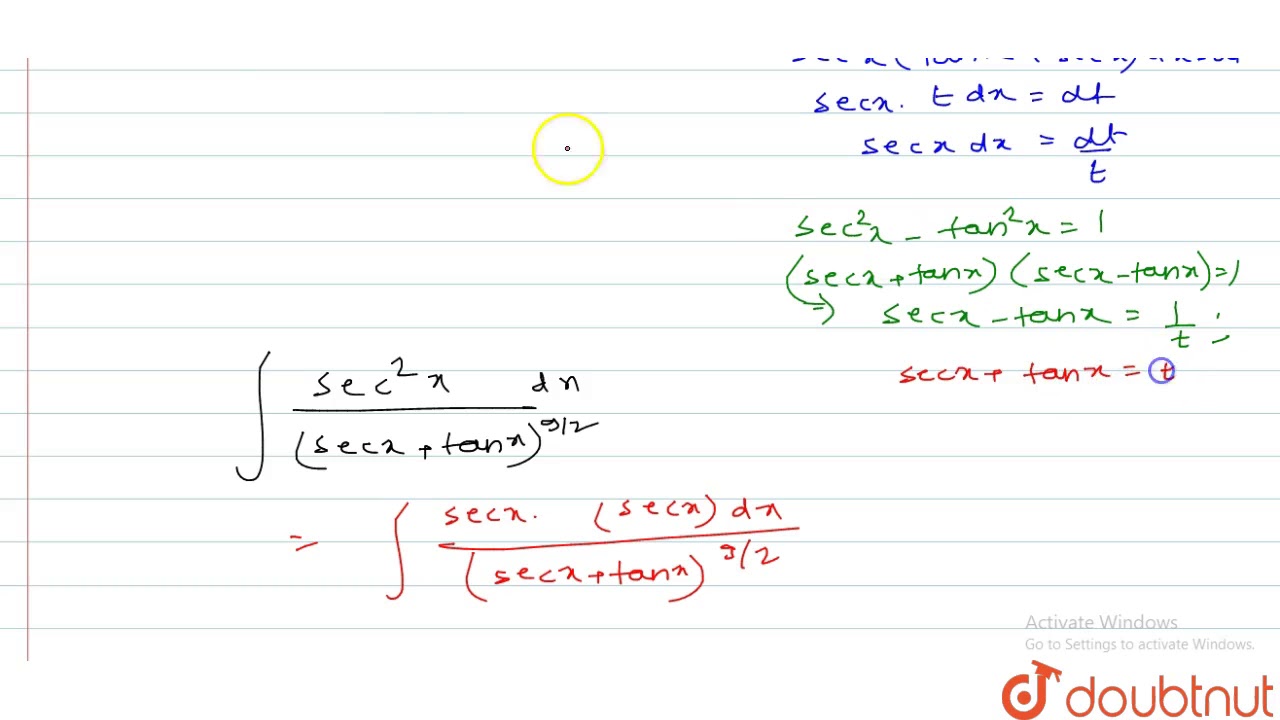 secx. t dx = dt
secx dx = dt/t
sec²x - tan²x = 1
(secx + tanx) (secx - tanx) = 1
⇒ secx - tanx = 1/t ;
secx + tanx = t
∫ sec²x dx / (secx + tanx)^9/2
= ∫ secx. (secx) dx / (secx + tanx)^9/2
Activate Windows
Go to Settings to activate Windows.
doubtnut